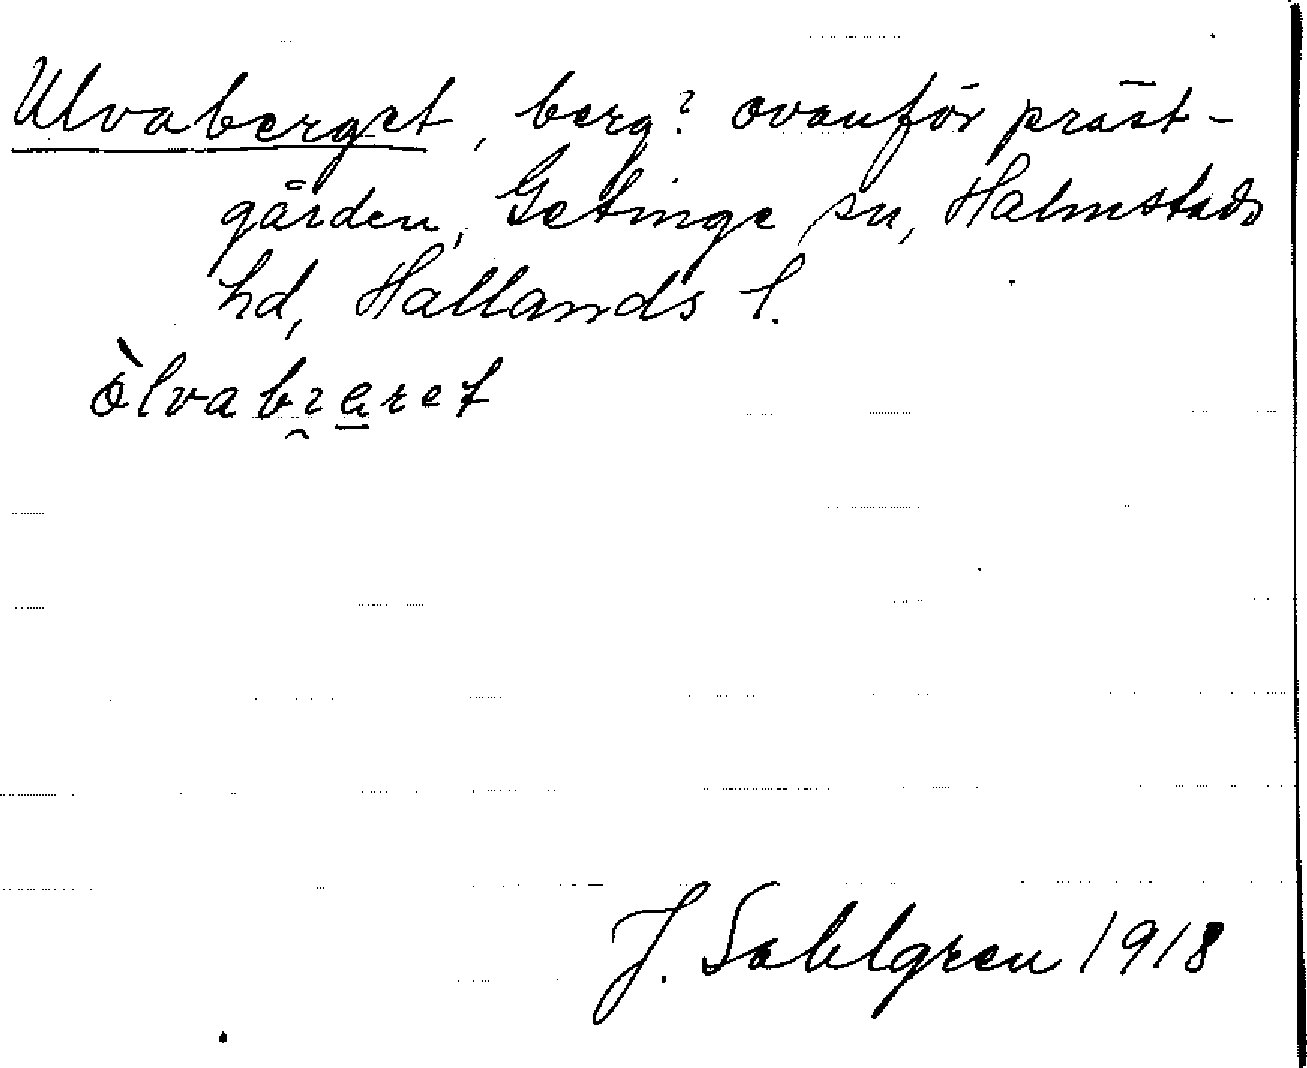 Ulvaberget, berg? ovanför präst-
gården, Getinge sn, Halmstads
hd, Hallands l.
J. Sahlgren 1918